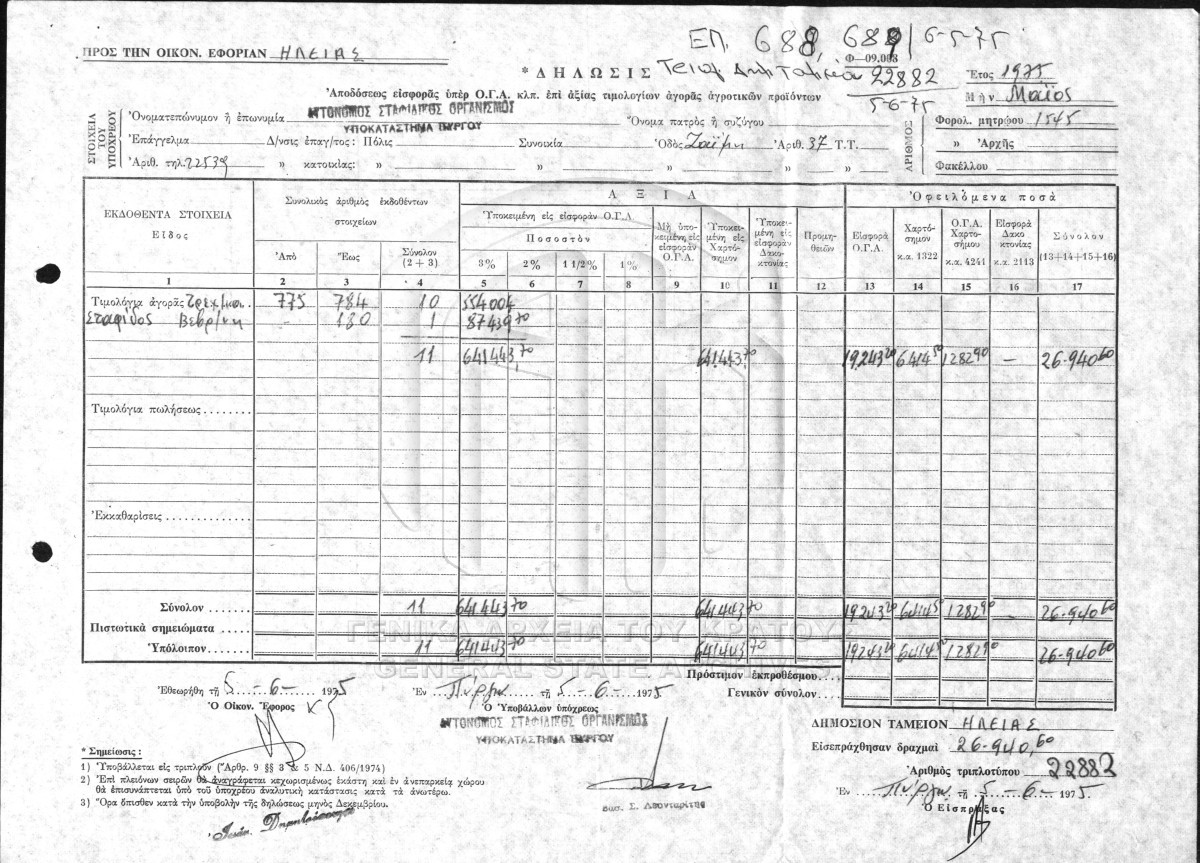 ΠΡΟΣ ΤΗΝ ΟΙΚΟΝ. ΕΦΟΡΙΑΝ ΗΛΕΙΑΣ
ΕΠ. 688, 689/6-5-75
Φ—09.008
* ΔΗΛΩΣΙΣ
22882
5-6-75
Ἔτος 1975
Μὴν Μάϊος
Ἀποδόσεως εἰσφορᾶς ὑπὲρ Ο.Γ.Α. κλπ. ἐπὶ ἀξίας τιμολογίων ἀγορᾶς ἀγροτικῶν προϊόντων
ΣΤΟΙΧΕΙΑ ΤΟΥ ΥΠΟΧΡΕΟΥ
Ὀνοματεπώνυμον ἢ ἐπωνυμία ΑΥΤΟΝΟΜΟΣ ΣΤΑΦΙΔΙΚΟΣ ΟΡΓΑΝΙΣΜΟΣ
ΥΠΟΚΑΤΑΣΤΗΜΑ ΠΥΡΓΟΥ
Ὄνομα πατρὸς ἢ συζύγου
Ἐπάγγελμα Δ/νσις ἐπαγ/τος: Πόλις Συνοικία Ὁδὸς Ζαΐμη Ἀριθ. 37 Τ.Τ.
Ἀριθ. τηλ. 22539 » κατοικίας: » » » » »
ΑΡΙΘΜΟΣ
Φορολ. μητρώου 1545
» Ἀρχῆς
Φακέλλου
ΕΚΔΟΘΕΝΤΑ ΣΤΟΙΧΕΙΑ
Εἶδος
Συνολικὸς ἀριθμὸς ἐκδοθέντων στοιχείων
Ἀπὸ Ἕως Σύνολον (2+3)
ΑΞΙΑ
Ὑποκειμένη εἰς εἰσφορὰν Ο.Γ.Α.
Ποσοστὸν
3% 2% 1 1/2% 1%
Μὴ ὑποκειμένη εἰς εἰσφορὰν Ο.Γ.Α.
Ὑποκειμένη εἰς Χαρτόσημον
Ὑποκειμένη εἰς εἰσφορὰν Δακοκτονίας
Προμηθειῶν
Ὀφειλόμενα ποσά
Εἰσφορὰ Ο.Γ.Α.
Χαρτόσημον κ.α. 1322
Ο.Γ.Α. Χαρτοσήμου κ.α. 4241
Εἰσφορὰ Δακοκτονίας κ.α. 2113
Σύνολον (13+14+15+16)
1 2 3 4 5 6 7 8 9 10 11 12 13 14 15 16 17
Τιμολόγια ἀγορᾶς 775 784 10 554004
Σταφίδος - 180 1 87439,70
11 641443,70 641443,70 19.243,20 6414,50 1282,90 — 26.940,60
Τιμολόγια πωλήσεως
Ἐκκαθαρίσεις
Σύνολον 11 641443,70 641443,70 19243,20 6414,50 1282,90 - 26.940,60
Πιστωτικὰ σημειώματα
Ὑπόλοιπον 11 641443,70 641443,70 19243,20 6414,50 1282,90 26.940,60
ΓΕΝΙΚΑ ΑΡΧΕΙΑ ΤΟΥ ΚΡΑΤΟΥΣ
GENERAL STATE ARCHIVES
Πρόστιμον ἐκπροθέσμου
Γενικὸν σύνολον
Ἐθεωρήθη τῇ 5-6-1975
Ὁ Οἰκον. Ἔφορος
Ἐν Πύργῳ τῇ 5-6-1975
Ὁ Ὑποβάλλων ὑπόχρεως
ΑΥΤΟΝΟΜΟΣ ΣΤΑΦΙΔΙΚΟΣ ΟΡΓΑΝΙΣΜΟΣ
ΥΠΟΚΑΤΑΣΤΗΜΑ ΠΥΡΓΟΥ
ΔΗΜΟΣΙΟΝ ΤΑΜΕΙΟΝ ΗΛΕΙΑΣ
Εἰσεπράχθησαν δραχμαὶ 26.940,60
Ἀριθμὸς τριπλοτύπου 22882
Ἐν Πύργῳ τῇ 5-6-1975
Ὁ Εἰσπράξας
* Σημείωσις:
1) Ὑποβάλλεται εἰς τριπλοῦν (Ἄρθρ. 9 §§ 3 & 5 Ν.Δ. 406/1974)
2) Ἐπὶ πλειόνων σειρῶν θὰ ἀναγράφεται κεχωρισμένως ἑκάστη καὶ ἐν ἀνεπαρκείᾳ χώρου
θὰ ἐπισυνάπτεται ὑπὸ τοῦ ὑποχρέου ἀναλυτικὴ κατάστασις κατὰ τὰ ἀνωτέρω.
3) Ὅρα ὄπισθεν κατὰ τὴν ὑποβολὴν τῆς δηλώσεως μηνὸς Δεκεμβρίου.